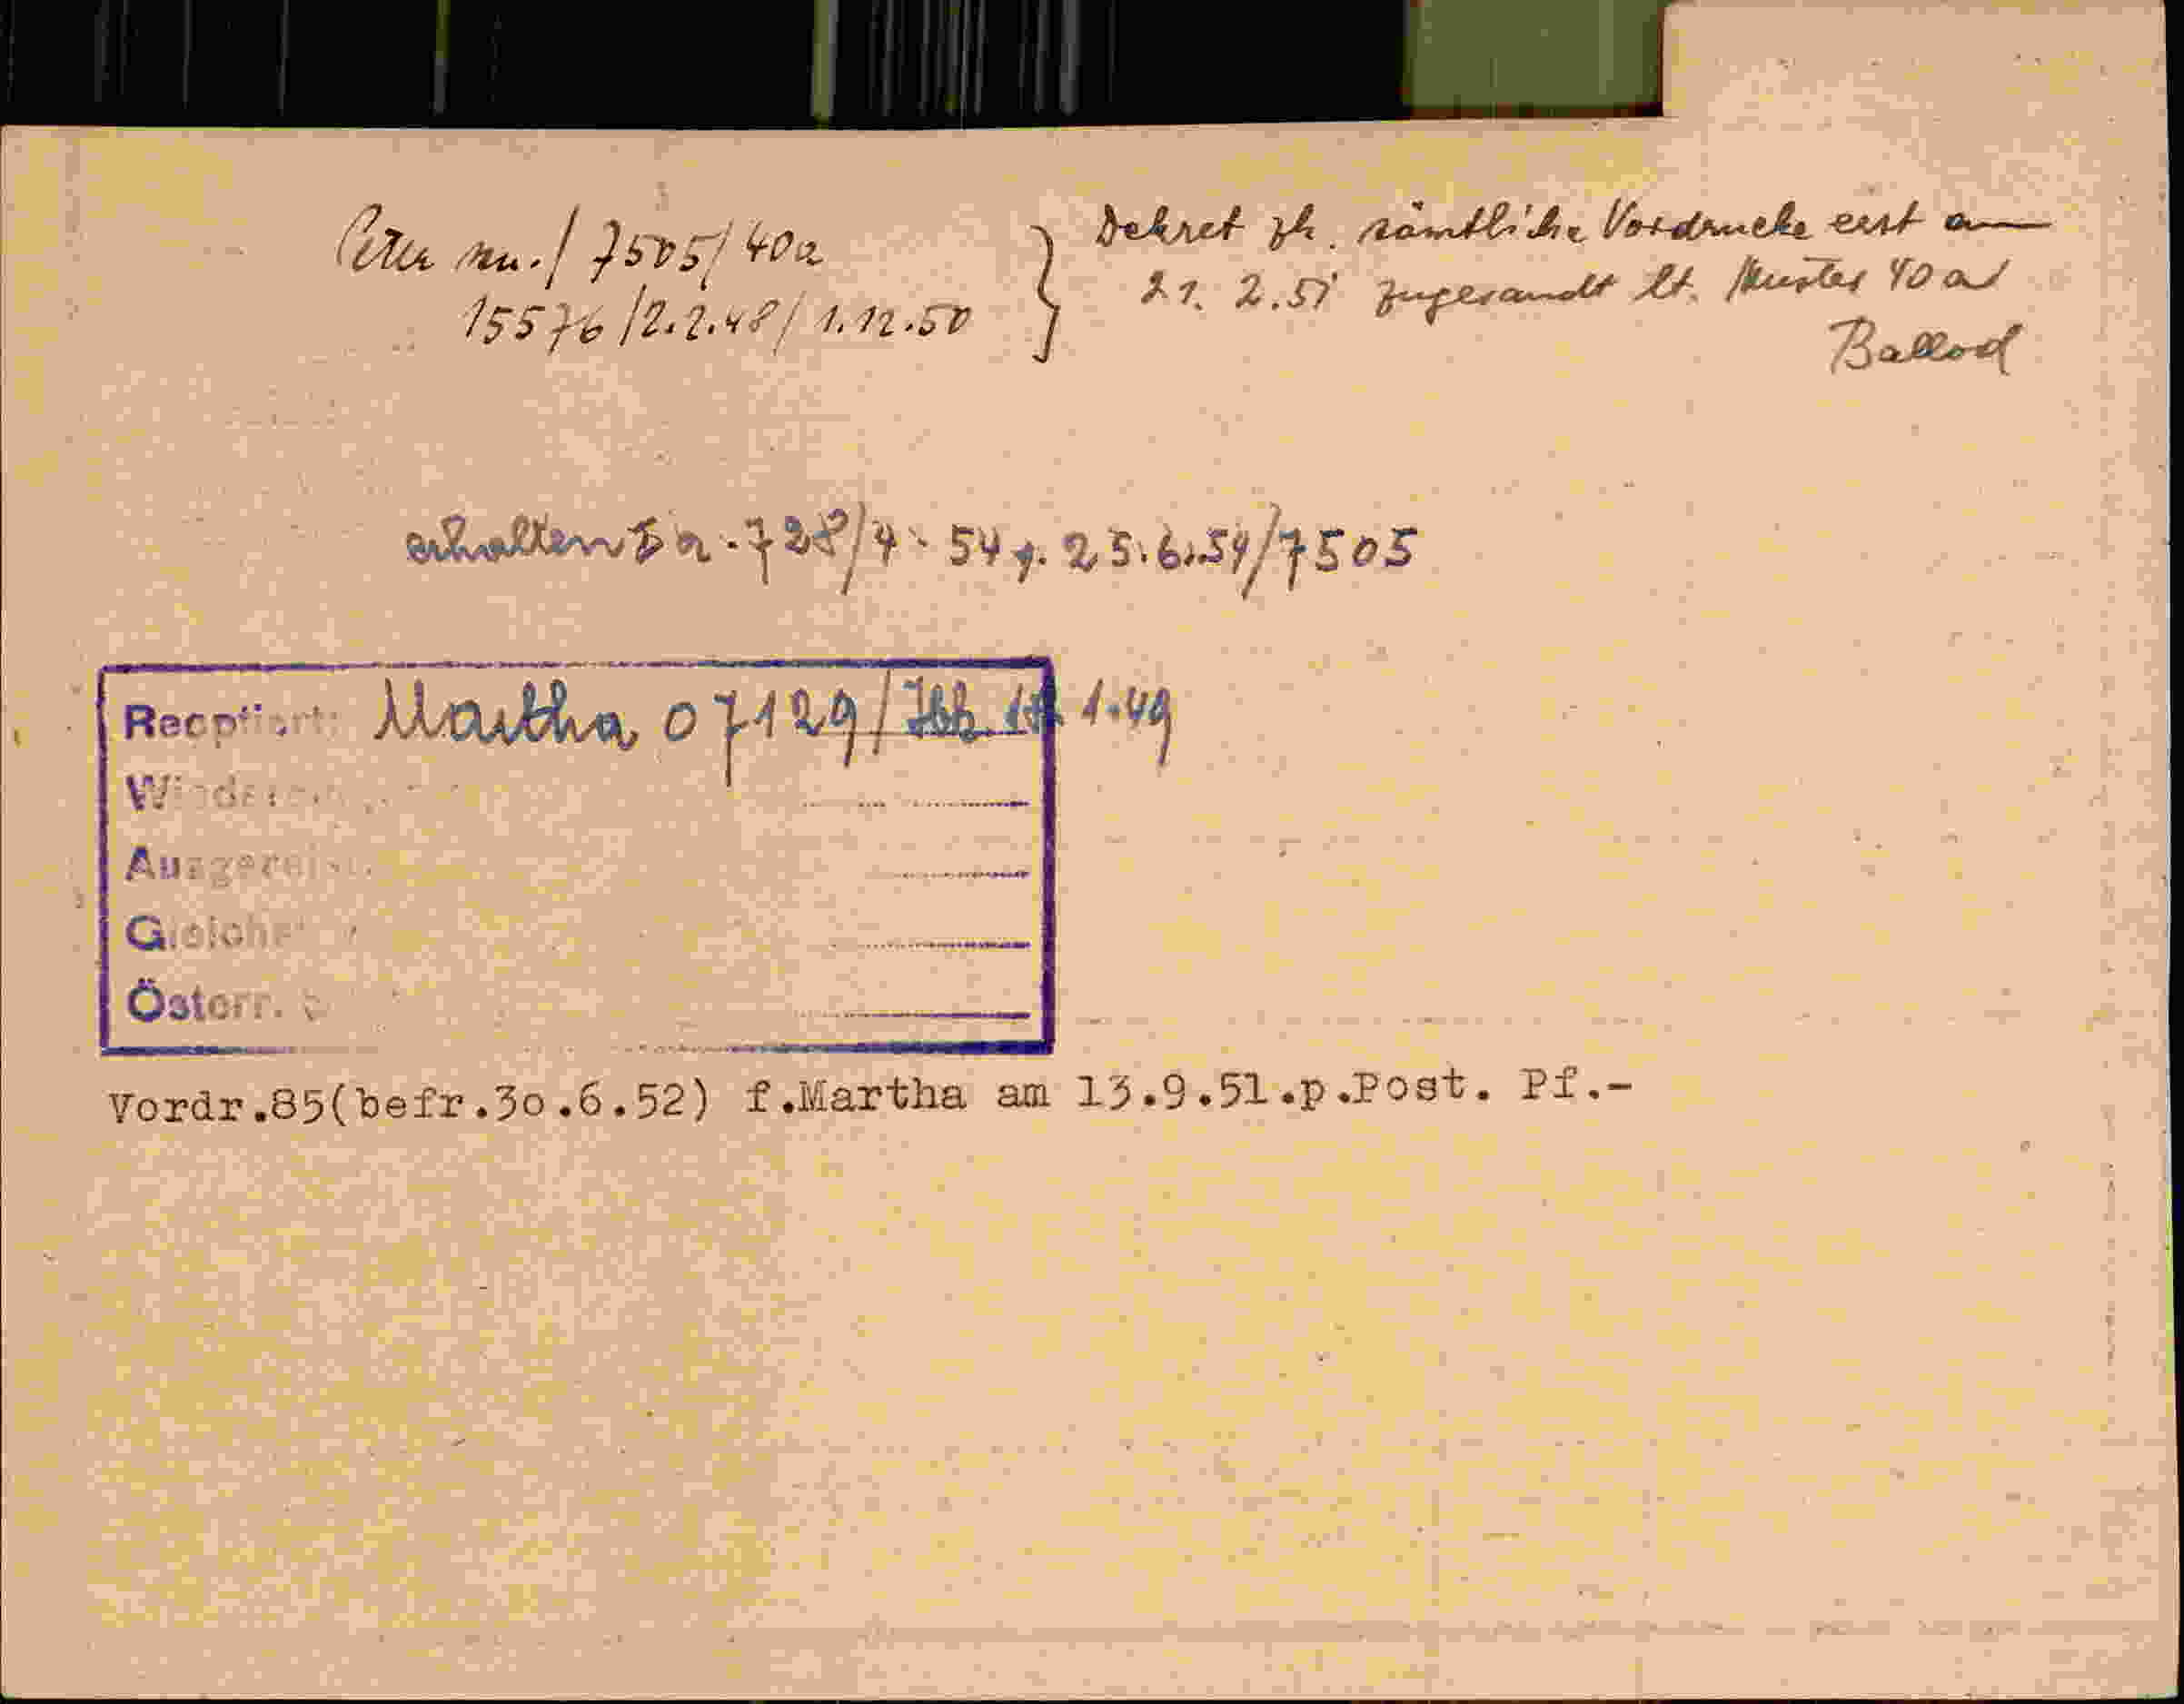 Peter nn. / 7505 / 40a
15576 / 2.2.48 / 1.12.50
Dekret zh. sämtliche Vordrucke erst am
21. 2. 51 zugesandt lt. Muster 40 a
Ballod
erhalten 728/4 - 54 v. 25.6.54/7505
Reoptiert: Martha 07129/ 1.49
Ausgereist:
Österr.
Vordr.85(befr.3o.6.52) f.Martha am 13.9.51.p.Post. Pf.-